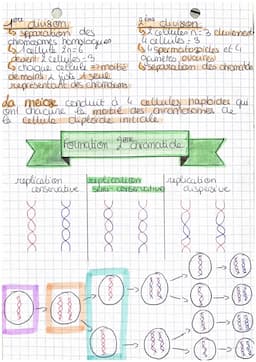 1ère division
↳ séparation des
chromosomes homologues
↳ 1 cellule 2n=6
devient 2 cellules =3
↳ chaque cellule = moitié
de moins 1 fois 1 seul
représentant des chromosomes
2ème division
↳ 2 cellules n=3 deviennent
4 cellules =3
↳ 4 spermatozoïdes et 4
gamètes ovaires
↳ séparation des chromatides
La méiose conduit à 4 cellules haploïdes qui
ont chacune la moitié des chromosomes de
la cellule diploïde initiale
Formation 2ème chromatide
réplication
conservative
réplication
semi-conservative
réplication
dispersive